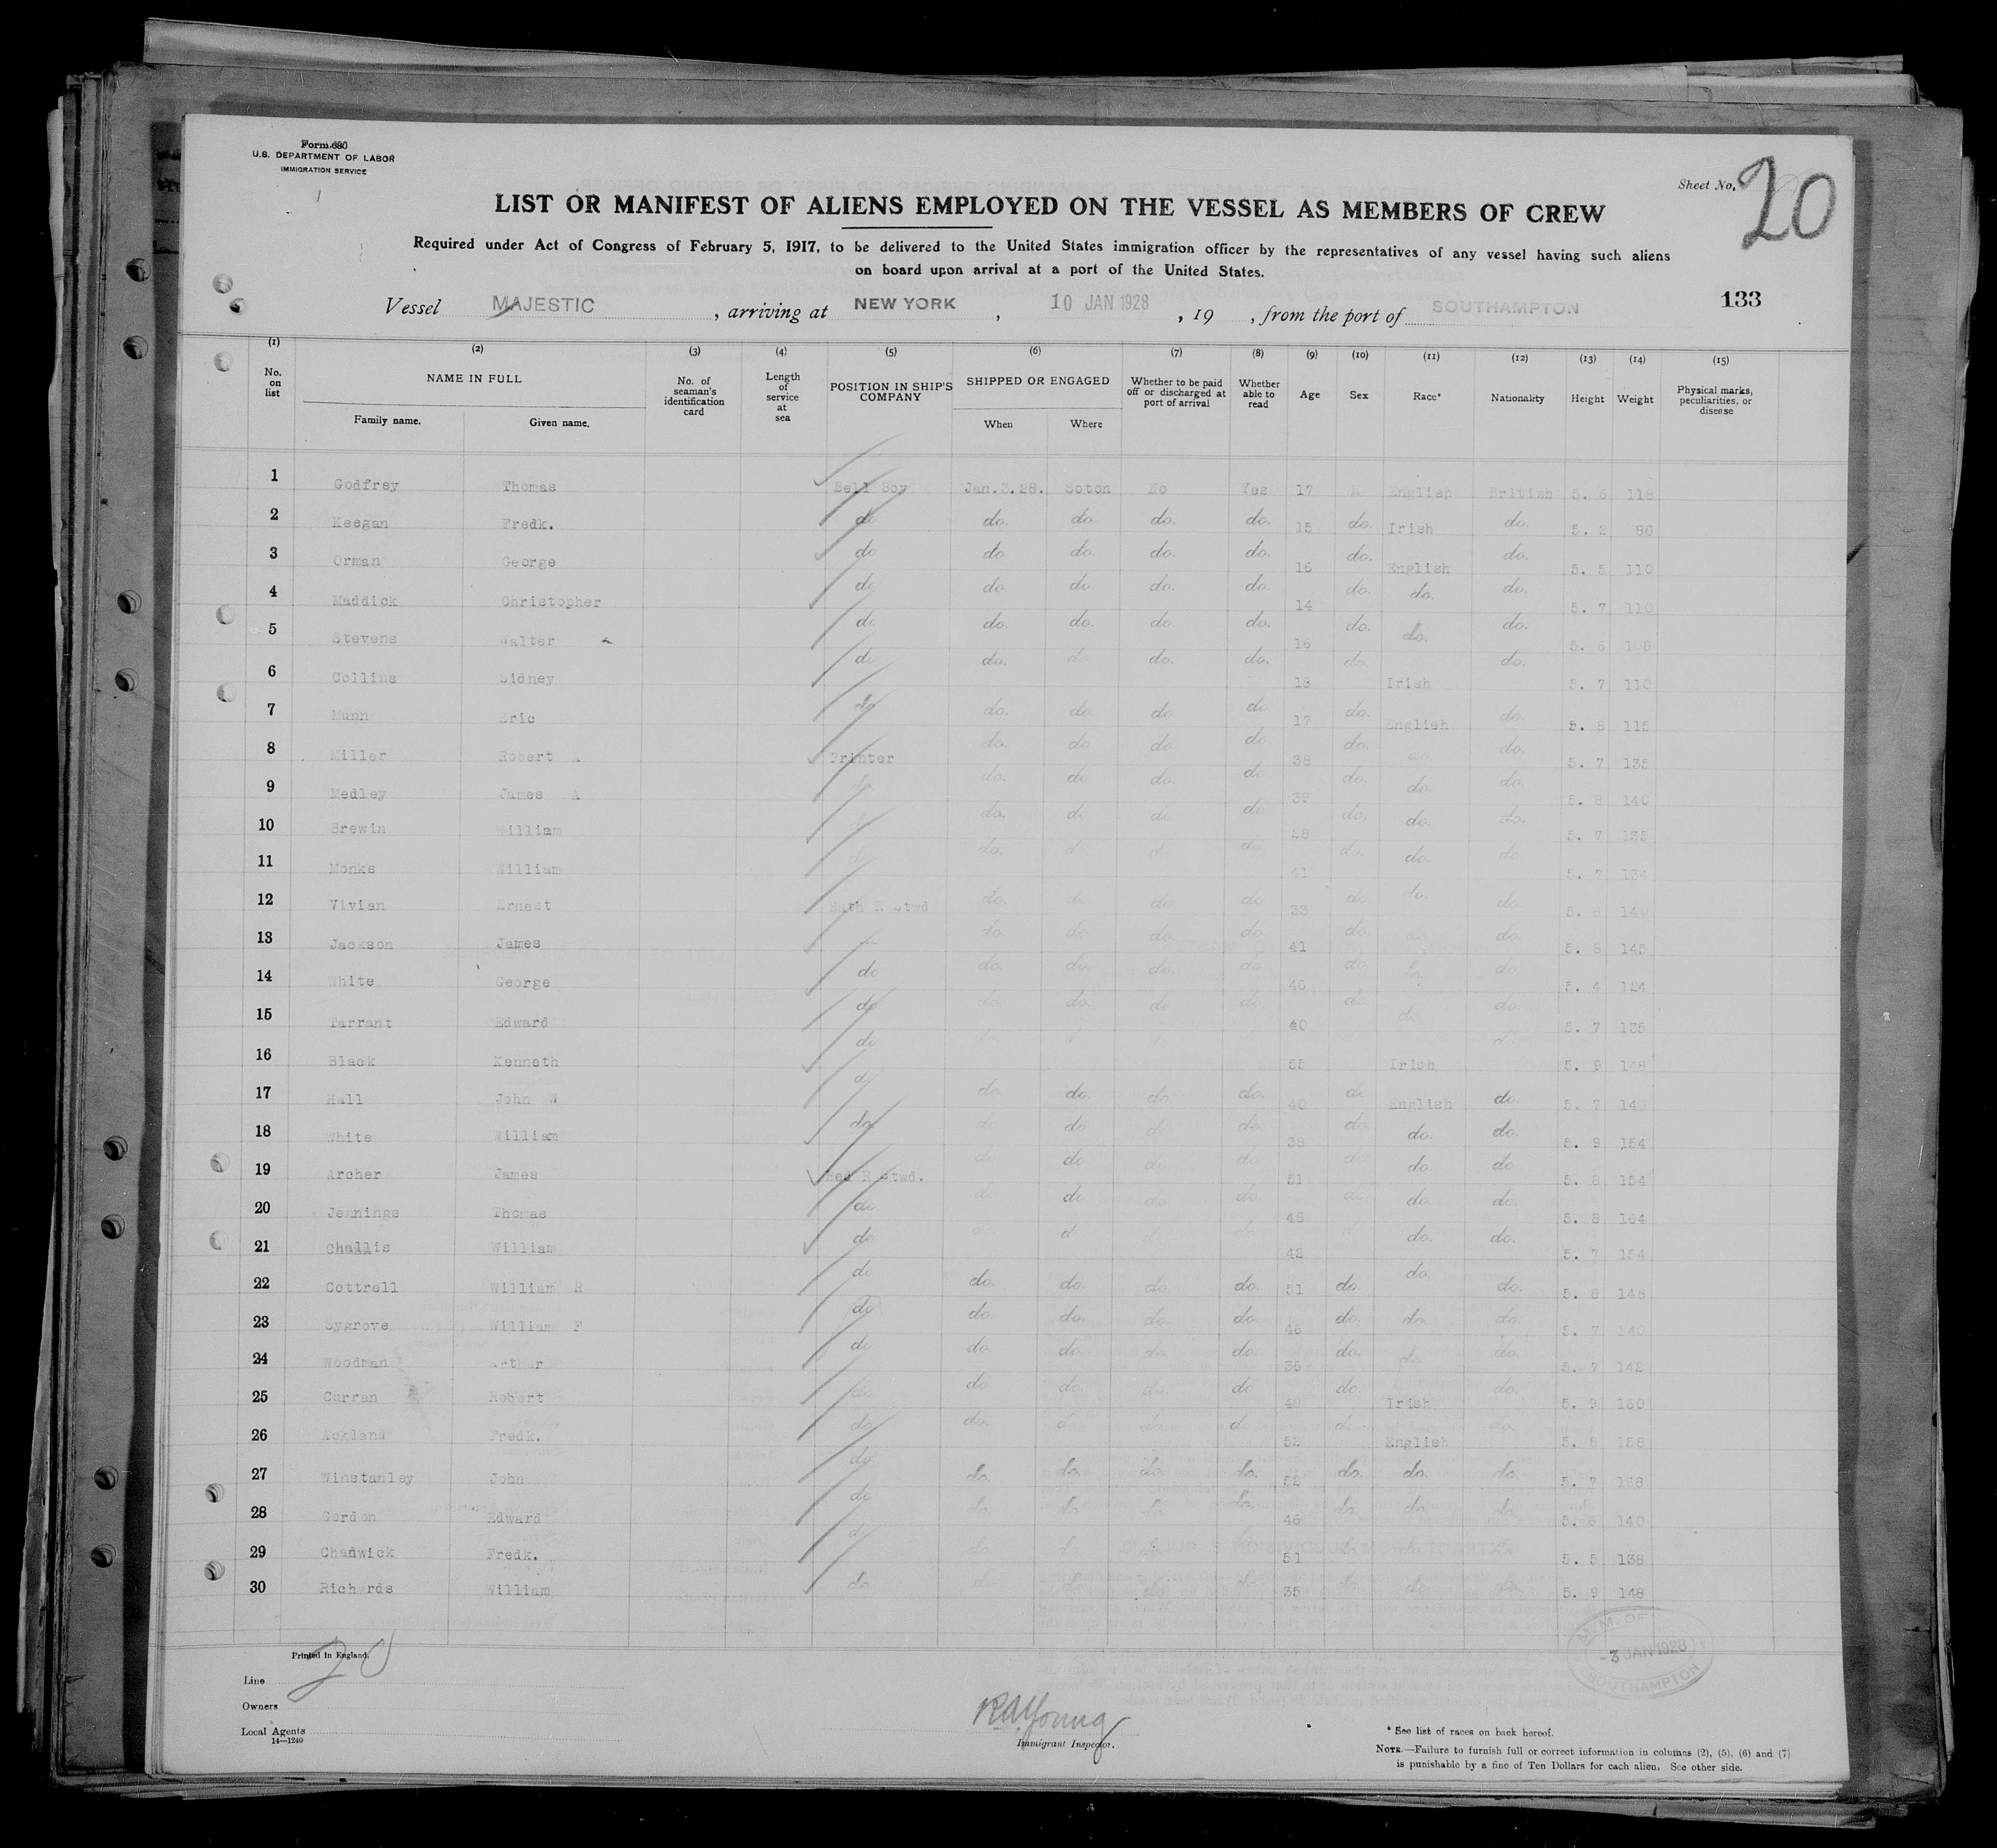 Form 680
U.S. DEPARTMENT OF LABOR
IMMIGRATION SERVICE
Sheet No. 20
LIST OR MANIFEST OF ALIENS EMPLOYED ON THE VESSEL AS MEMBERS OF CREW
Required under Act of Congress of February 5, 1917, to be delivered to the United States immigration officer by the representatives of any vessel having such aliens
on board upon arrival at a port of the United States.
Vessel MAJESTIC, arriving at NEW YORK, 10 JAN 1928, 19 , from the port of SOUTHAMPTON 133
(1) (2) (3) (4) (5) (6) (7) (8) (9) (10) (11) (12) (13) (14) (15)
No. on list NAME IN FULL Family name. Given name. No. of seaman's identification card Length of service at sea POSITION IN SHIP'S COMPANY SHIPPED OR ENGAGED When Where Whether to be paid off or discharged at port of arrival Whether able to read Age Sex Race* Nationality Height Weight Physical marks, peculiarities, or disease
1 Godfrey Thomas Bell Boy Jan.3.28. Soton No Yes 17 M English British 5. 6 118
2 Keegan Fredk. do do. do. do. do. 15 do. Irish do. 5. 2 86
3 Orman George do do do. do. do. 16 do. English do. 5. 5 110
4 Maddick Christopher do do. do. do. do. 14 do. do. do. 5. 7 110
5 Stevens Walter do do. do. do. do. 16 do. do. do. 5. 6 108
6 Collins Sidney do do. do do. do. 18 do. Irish do. 5. 7 110
7 Munn Eric do do. do do do 17 do. English do. 5. 8 115
8 Miller Robert A Printer do. do do do 38 do. do. do. 5. 7 135
9 Medley James A do do. do do. do 39 do. do. do. 5. 8 140
10 Brewin William do. do do do 28 do. do. do. 5. 7 135
11 Monks William do do. d d do 41 do. do. do. 5. 7 134
12 Vivian Ernest Bath R Stwd do. do. do. do 33 do. do. do. 5. 8
13 Jackson James do. do. do. do. 41 do. do. do. 5. 8 145
14 White George do do. do. do. do 46 do. do. do 5. 4 124
15 Tarrant Edward do do. do. do do. 40 do. do. do 5. 7 135
16 Black Kenneth do 55 Irish do. 5. 9 148
17 Hall John W d do. do. do. do. 40 do English do. 5. 7
18 White William do do do do do. 38 do. do. do. 5. 9 154
19 Archer James Bed R Stwd. do do do do 51 do. do. do 5. 8 154
20 Jennings Thomas do. do do do do. 48 do. do do. 5. 8 164
21 Challis William do d d 42 do. do. 5. 7 154
22 Cottrell William R do do. do. do. do. 51 do. do. do. 5. 8 148
23 Sygrove William F do do do. do. do. 46 do. do. do. 5. 7 140
24 Woodman Arthur do do. do. do. do. 36 do. do. do. 5. 7 142
25 Curran Robert do do do. do. do 48 do. Irish do. 5. 9 160
26 Ackland Fredk. do do. d do. d 52 d. English do. 5. 8 158
27 Winstanley John do do. do. do. do. 52 do. do. do. 5. 7 168
28 Gordon Edward do do. do do do. 46 do do do 5. 8 140
29 Chadwick Fredk. d do d do do 51 do do do 5. 5 138
30 Richards William do d d do. do. 35 do. do. do. 5. 9 148
Printed in England.
20
Line
Owners
Local Agents
14—1240
R A Young
Immigrant Inspector.
M. M. OF
-3 JAN 1928
SOUTHAMPTON
* See list of races on back hereof.
NOTE.—Failure to furnish full or correct information in columns (2), (5), (6) and (7)
is punishable by a fine of Ten Dollars for each alien. See other side.